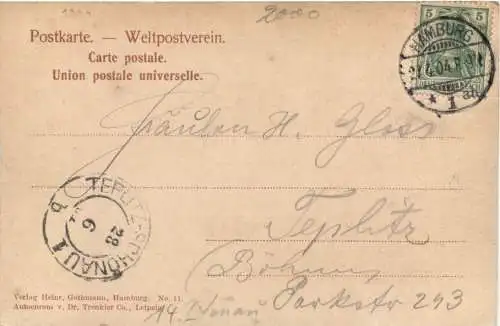 2000
Postkarte. — Weltpostverein.
Carte postale.
Union postale universelle.
5 5
HAMBURG
04
* 1
Fräulein H. Gloss
TEPLITZ-SCHÖNAU 1
28
6
Teplitz
Böhmen
Parkstr 293
Verlag Heinr. Gothmann, Hamburg. No. 11.
Autochrom v. Dr. Trenkler Co., Leipzig.